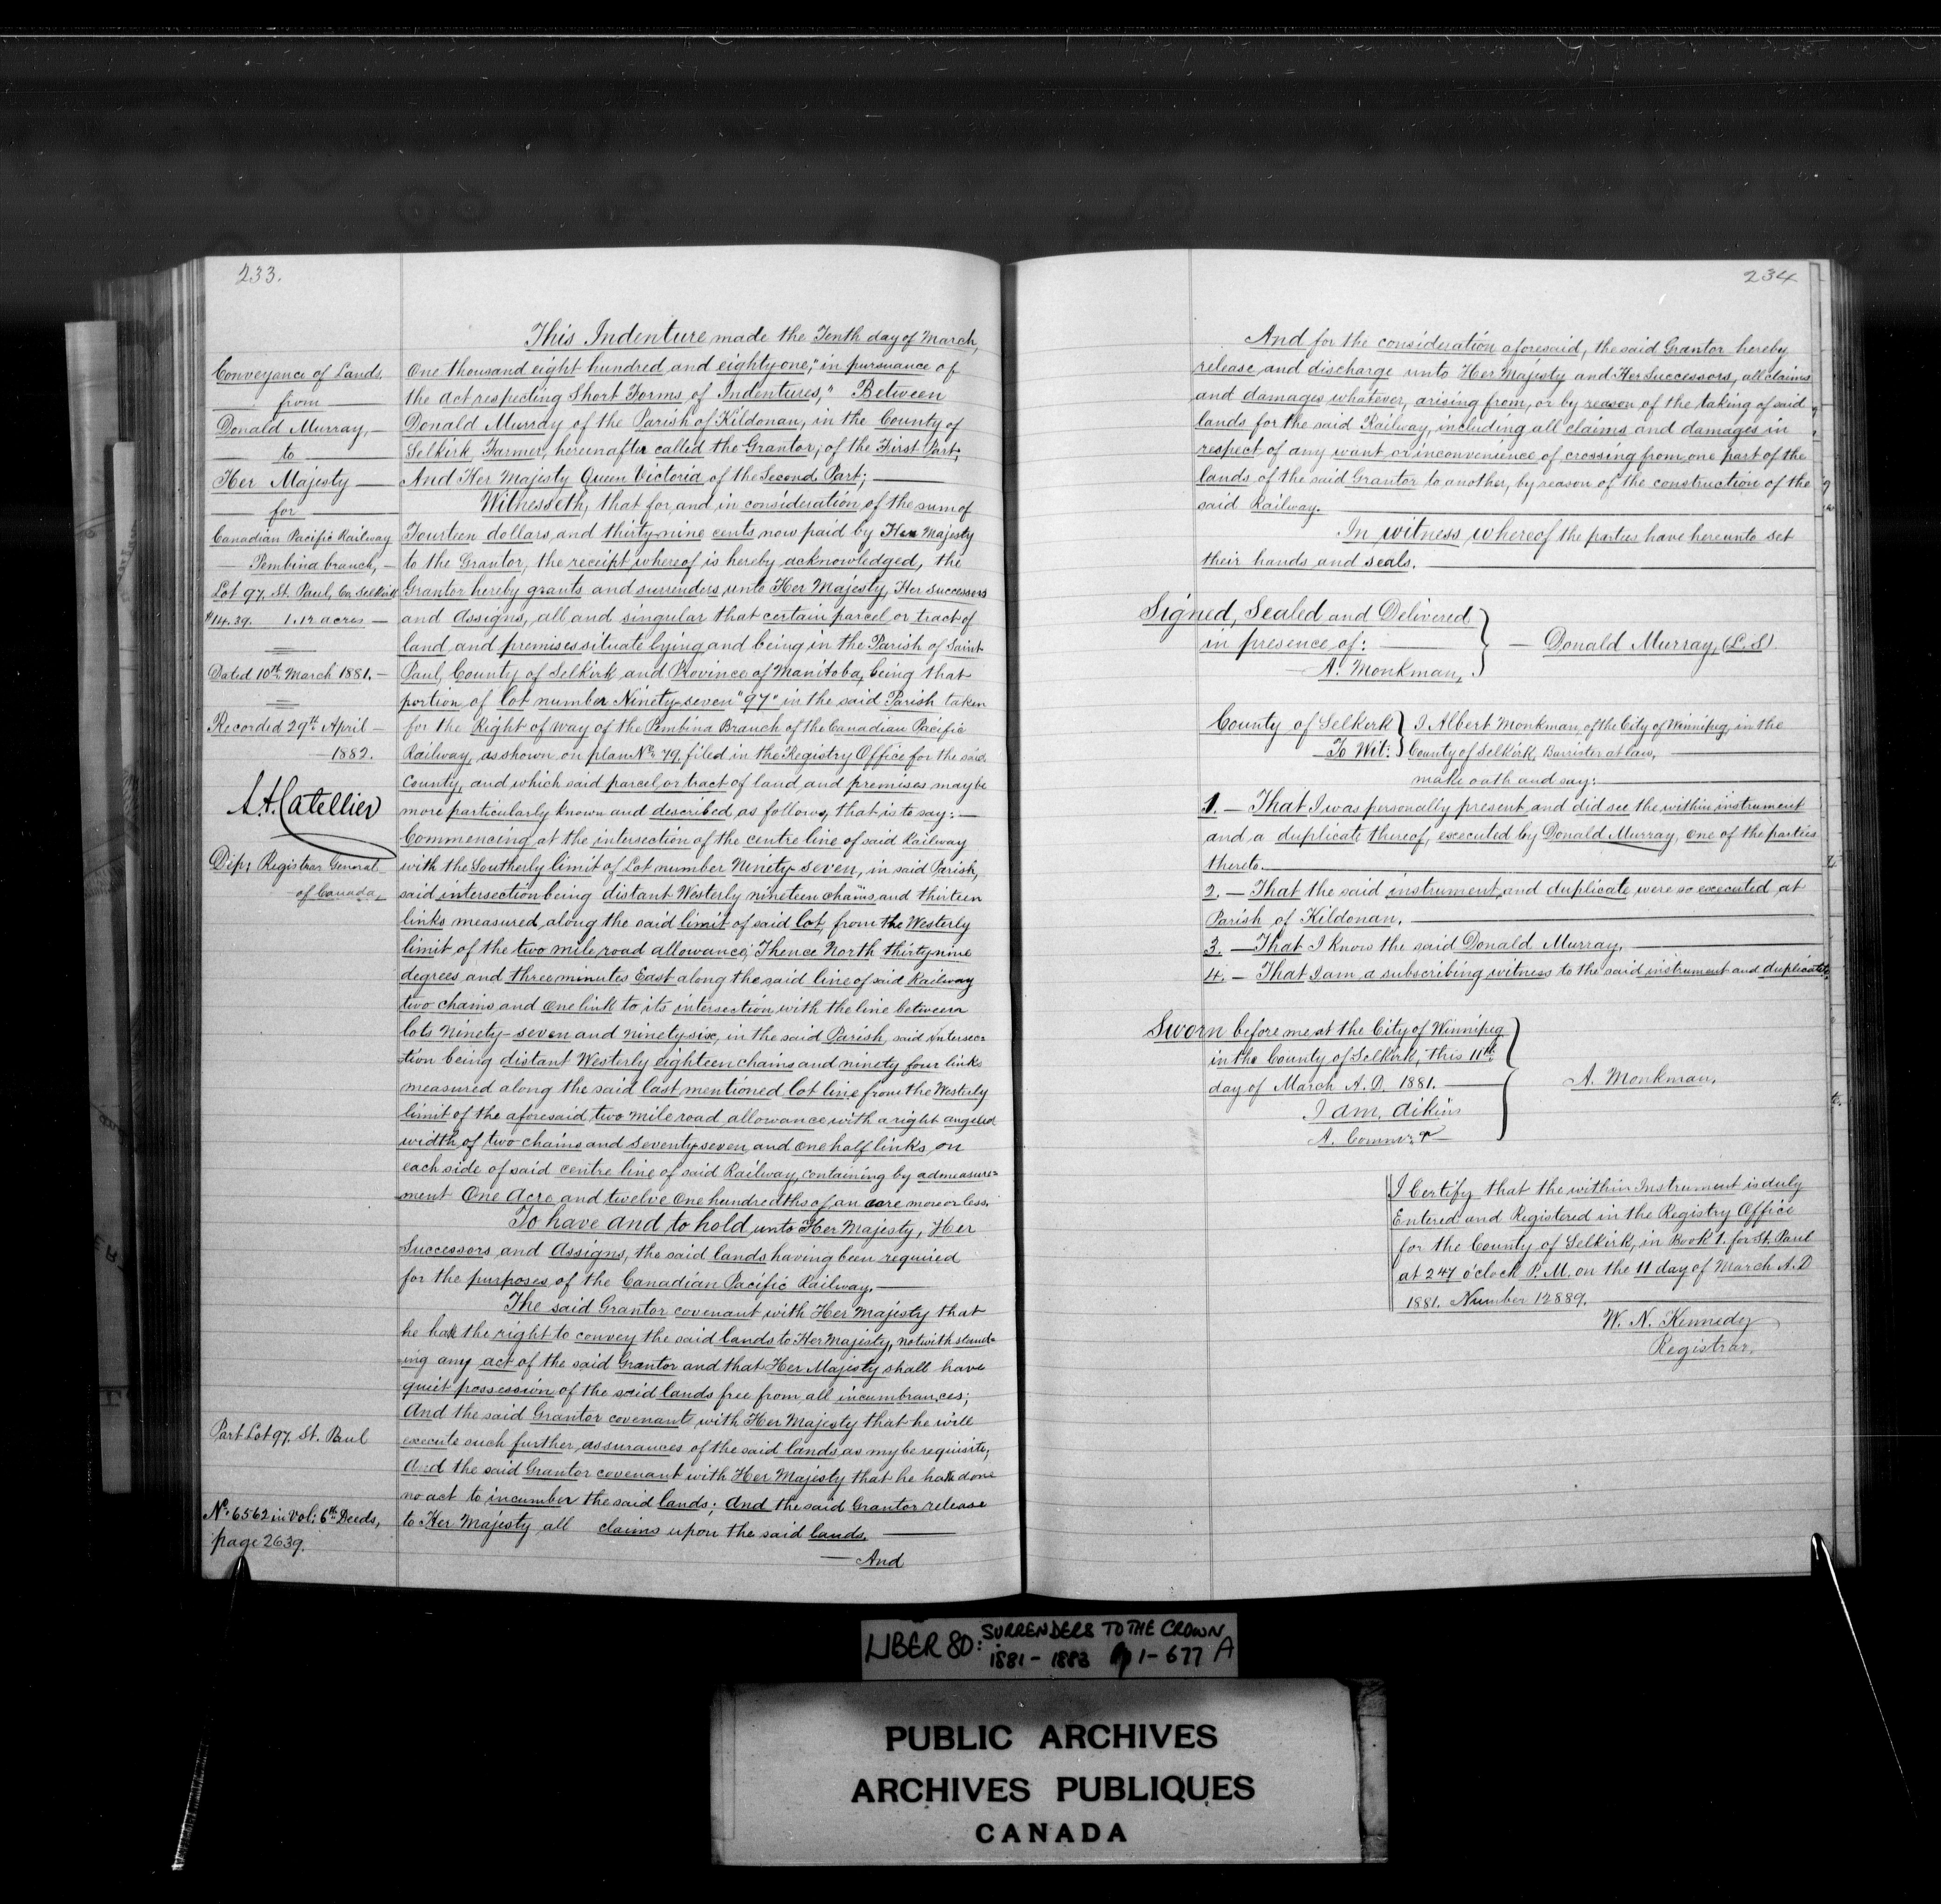 233.
Conveyance of Lands
from
Donald Murray,
to
Her Majesty
for
Canadian Pacific Railway
Pembina branch,
Lot 97. St. Paul, Co. Selkirk
$14.39. 1.12 acres
Dated 10th March 1881.
Recorded 29th April
1882.
A.A. Catellier
Dip; Registrar General
of Canada,
Part Lot 97. St. Paul
No. 6562 in Vol: 6th Deeds,
page 2639.
This Indenture made the Tenth day of March,
One thousand eight hundred and eighty-one, "in pursuance of
the Act respecting Short Forms of Indentures," Between
Donald Murray of the Parish of Kildonan, in the County of
Selkirk, Farmer, hereinafter called the Grantor, of the First Part,
And Her Majesty Queen Victoria, of the Second Part;
Witnesseth, that for and in consideration of the sum of
Fourteen dollars, and thirty-nine cents now paid by Her Majesty
to the Grantor, the receipt whereof is hereby acknowledged, the
Grantor hereby grants and surrenders unto Her Majesty, Her Successors
and Assigns, all and singular that certain parcel or tract of
land and premises situate lying and being in the Parish of Saint
Paul, County of Selkirk and Province of Manitoba, being that
portion of lot number Ninety-seven "97" in the said Parish taken
for the Right of Way of the Pembina Branch of the Canadian Pacific
Railway, as shown on plan No. 79, filed in the Registry Office for the said
County, and which said parcel or tract of land and premises may be
more particularly known and described as follows, that is to say:
Commencing at the intersection of the centre line of said Railway
with the Southerly limit of Lot number Ninety-seven, in said Parish,
said intersection being distant Westerly nineteen chains and thirteen
links measured along the said limit of said lot, from the Westerly
limit of the two mile road allowance; Thence North thirty-nine
degrees and three minutes East along the said line of said Railway
two chains and one link to its intersection with the line between
lots Ninety-seven and ninety six, in the said Parish, said intersec=
tion being distant Westerly eighteen chains and ninety four links
measured along the said last mentioned lot line from the Westerly
limit of the aforesaid two mile road allowance with a right angled
width of two chains and seventy-seven and one half links, on
each side of said centre line of said Railway, containing by admeasure=
ment One Acre and twelve One hundredths of an acre more or less.
To have and to hold unto Her Majesty, Her
Successors and Assigns, the said lands having been required
for the purposes of the Canadian Pacific Railway.
The said Grantor covenant with Her Majesty that
he hath the right to convey the said lands to Her Majesty, notwithstand=
ing any act of the said Grantor and that Her Majesty shall have
quiet possession of the said lands free from all incumbrances;
And the said Grantor covenant with Her Majesty that he will
execute such further assurances of the said lands as my be requisite,
And the said Grantor covenant with Her Majesty that he hath done
no act to incumber the said lands; And the said Grantor release
to Her Majesty all claims upon the said lands.
And
234
And for the consideration aforesaid, the said Grantor hereby
release and discharge unto Her Majesty and Her Successors, all claims
and damages whatever, arising from, or by reason of the taking of said
lands for the said Railway, including all claims and damages in
respect of any want or inconvenience of crossing from one part of the
lands of the said Grantor to another, by reason of the construction of the
said Railway.
In witness whereof the parties have hereunto set
their hands and seals.
Signed, Sealed and Delivered
in presence of:
A. Monkman,
Donald Murray, (L.S)
County of Selkirk
To Wit:
I Albert Monkman, of the City of Winnipeg, in the
County of Selkirk, Barrister at law,
make oath and say:
1. That I was personally present, and did see the within instrument
and a duplicate thereof, executed by Donald Murray, one of the parties
thereto.
2. That the said instrument and duplicate were so executed at
Parish of Kildonan.
3. That I know the said Donald Murray.
4. That I am a subscribing witness to the said instrument and duplicate.
Sworn before me at the City of Winnipeg
in the County of Selkirk, this 11th
day of March A.D. 1881.
J am, Aikins
A. Commr. &
A. Monkman.
I Certify that the within Instrument is duly
Entered and Registered in the Registry Office
for the County of Selkirk, in Book 1. for St. Paul
at 2 47 o'clock P.M. on the 11 day of March A.D
1881. Number 12889.
W. N. Kennedy
Registrar.
LIBER 80: SURRENDERS TO THE CROWN
1881-1883 pp 1-677 A
PUBLIC ARCHIVES
ARCHIVES PUBLIQUES
CANADA